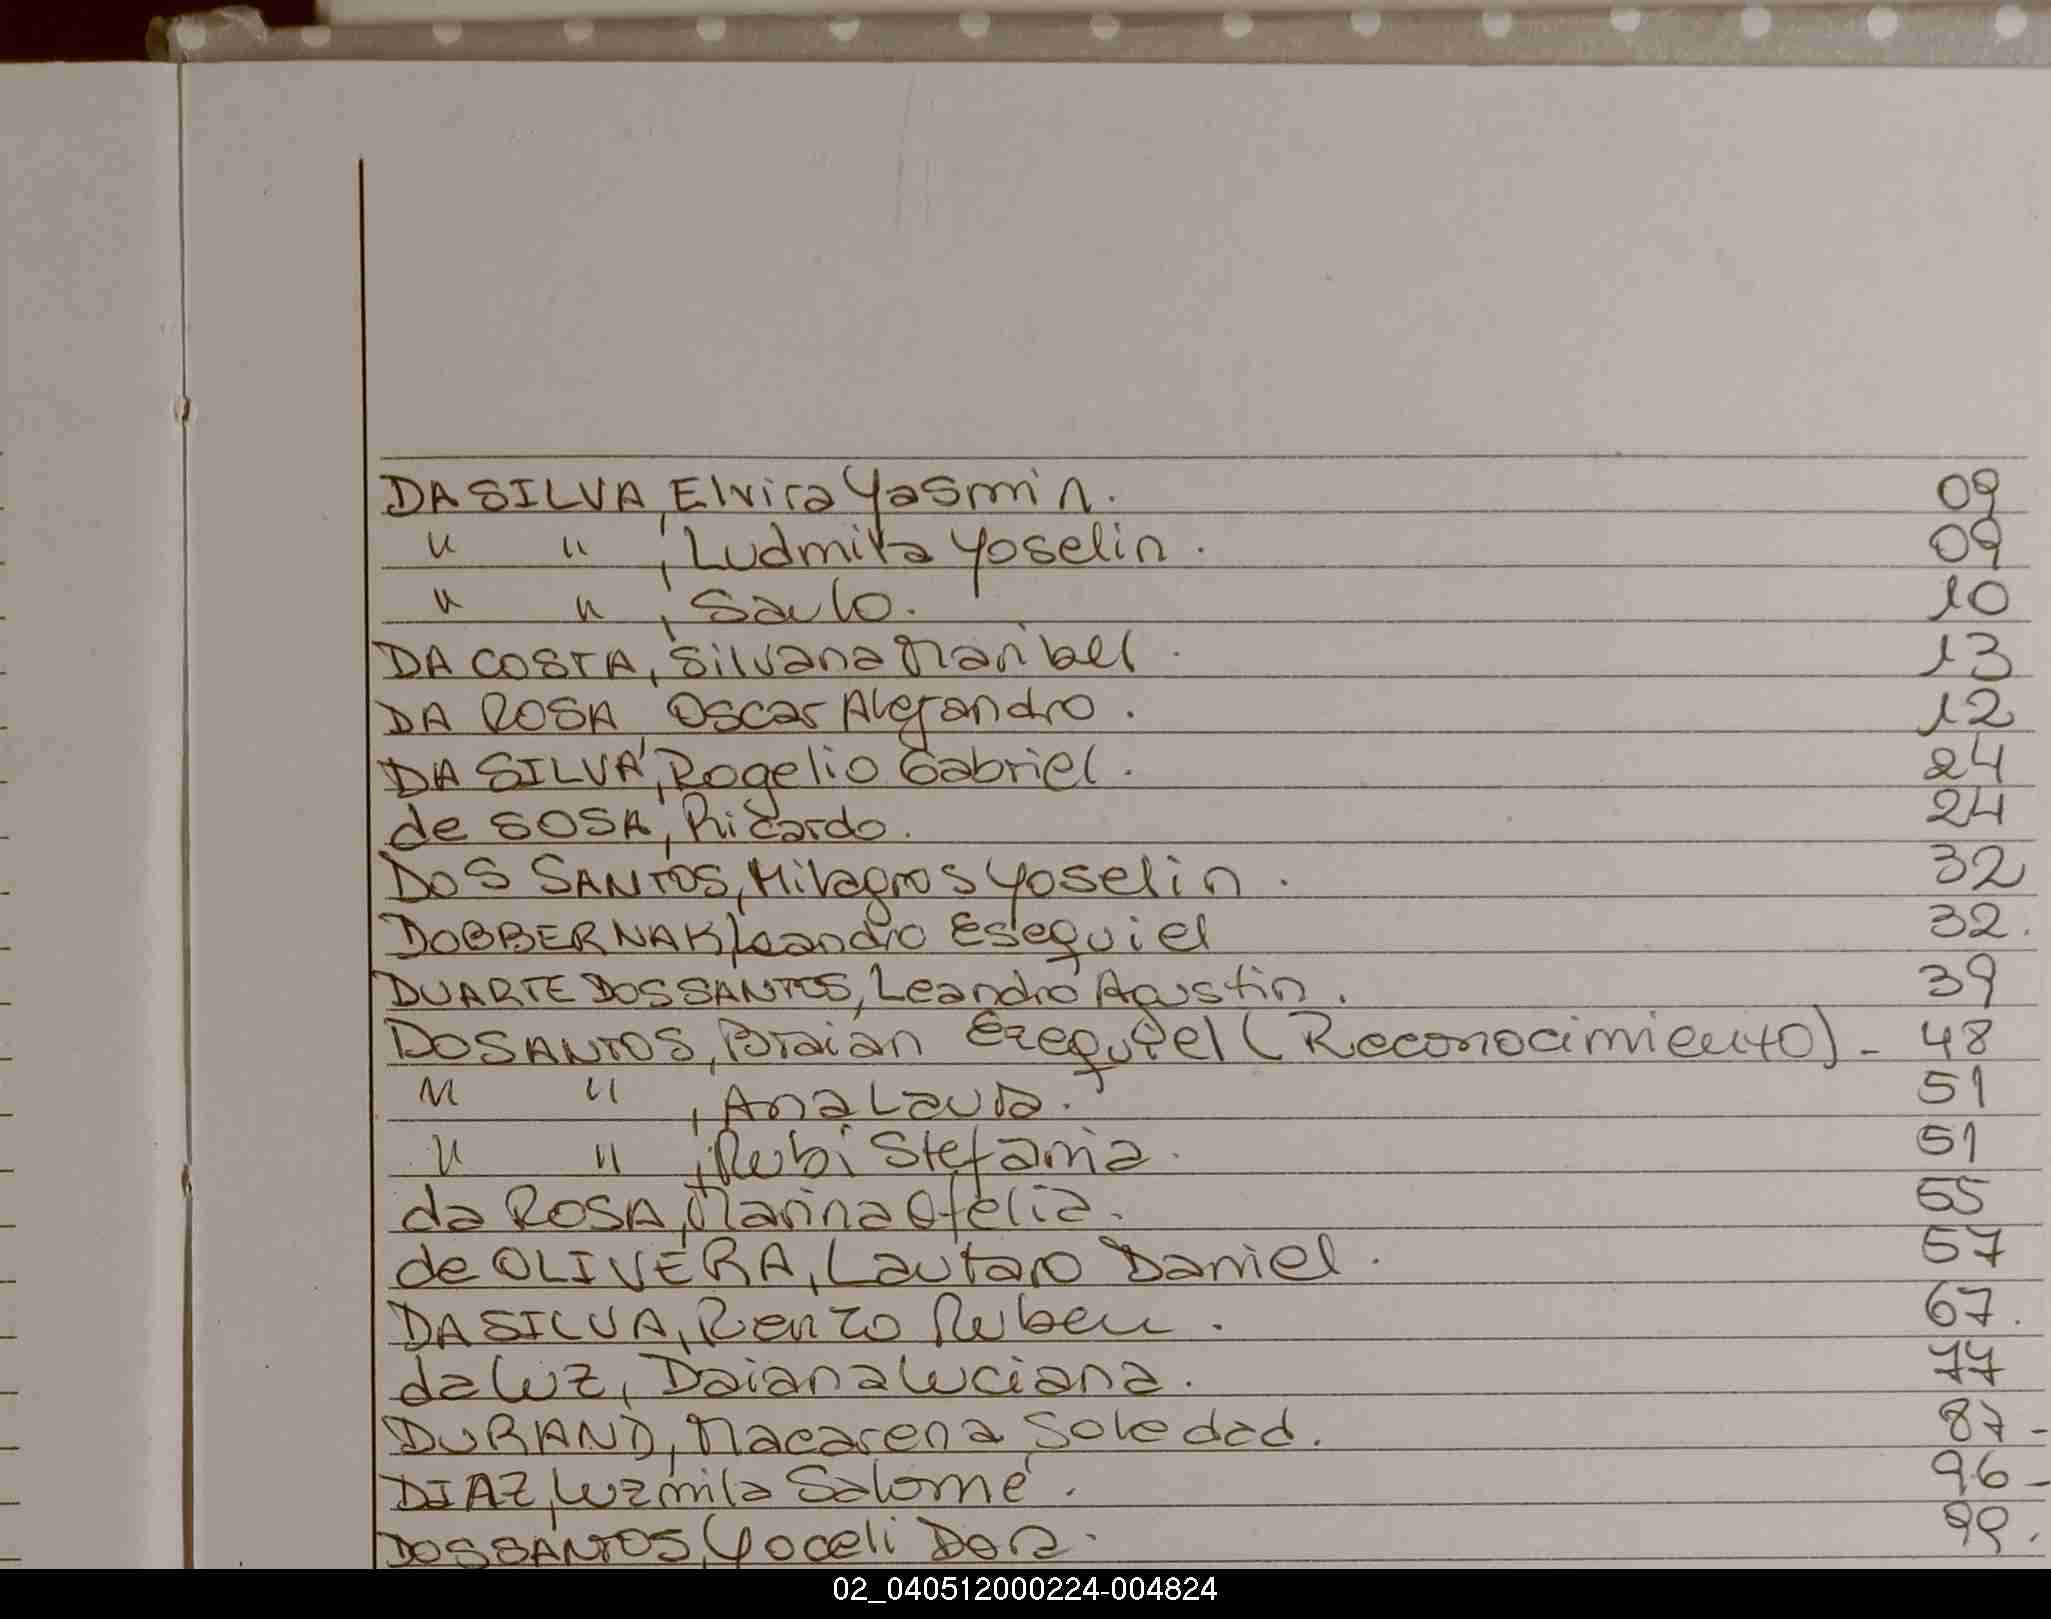 DA SILVA, Elvira Yasmin. 09
" " , Ludmila Yoselin. 09
" " , Saulo. 10
DA COSTA, Silvana Maribel. 13
DA ROSA Oscar Alejandro. 12
DA SILVA, Rogelio Gabriel. 24
de SOSA, Ricardo. 24
DOS SANTOS, Milagros Yoselin. 32
DOBBERNAK, Leandro Esequiel 32.
DUARTE DOS SANTOS, Leandro Agustin. 39
DOSANTOS, Braian Ezequiel (Reconocimiento)- 48
" " , Ana Laura. 51
" " , Rubi Stefania. 51
da ROSA, Marina Ofelia. 55
de OLIVERA, Lautaro Daniel. 57
DA SILVA, Renzo Ruben. 67.
da Luz, Daiana Luciana. 77
DURAND, Macarena Soledad. 87-
DIAZ, Luzmila Salomé. 96-
DOS SANTOS, Yoceli Dora. 99.
02_040512000224-004824